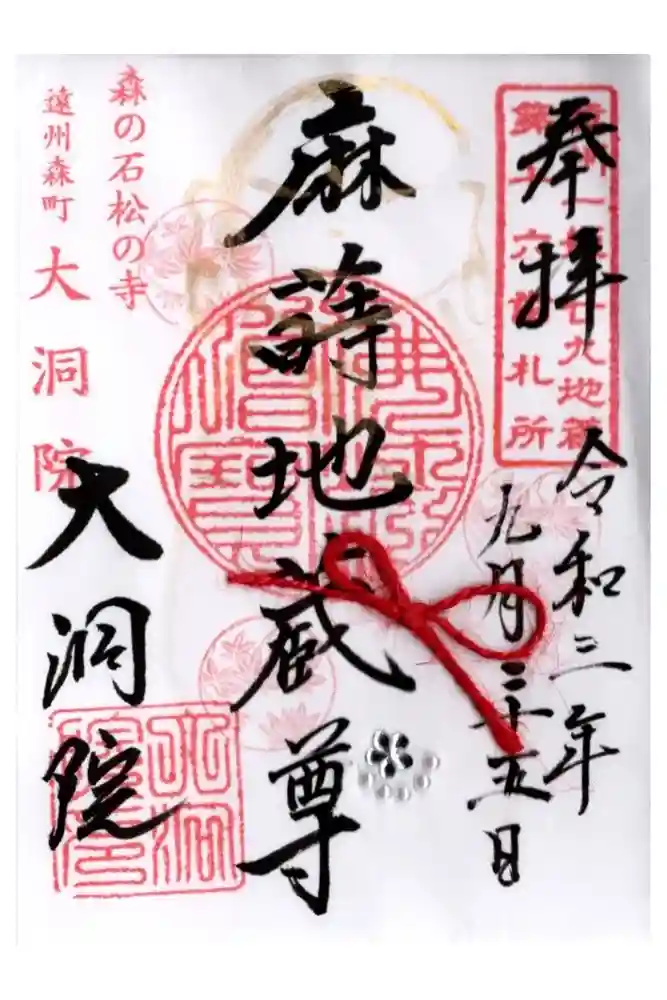 奉拝
令和三年
九月二十五日
第十六番札所
麻蒔地蔵尊
森の石松の寺
遠州森町
大洞院
大洞院